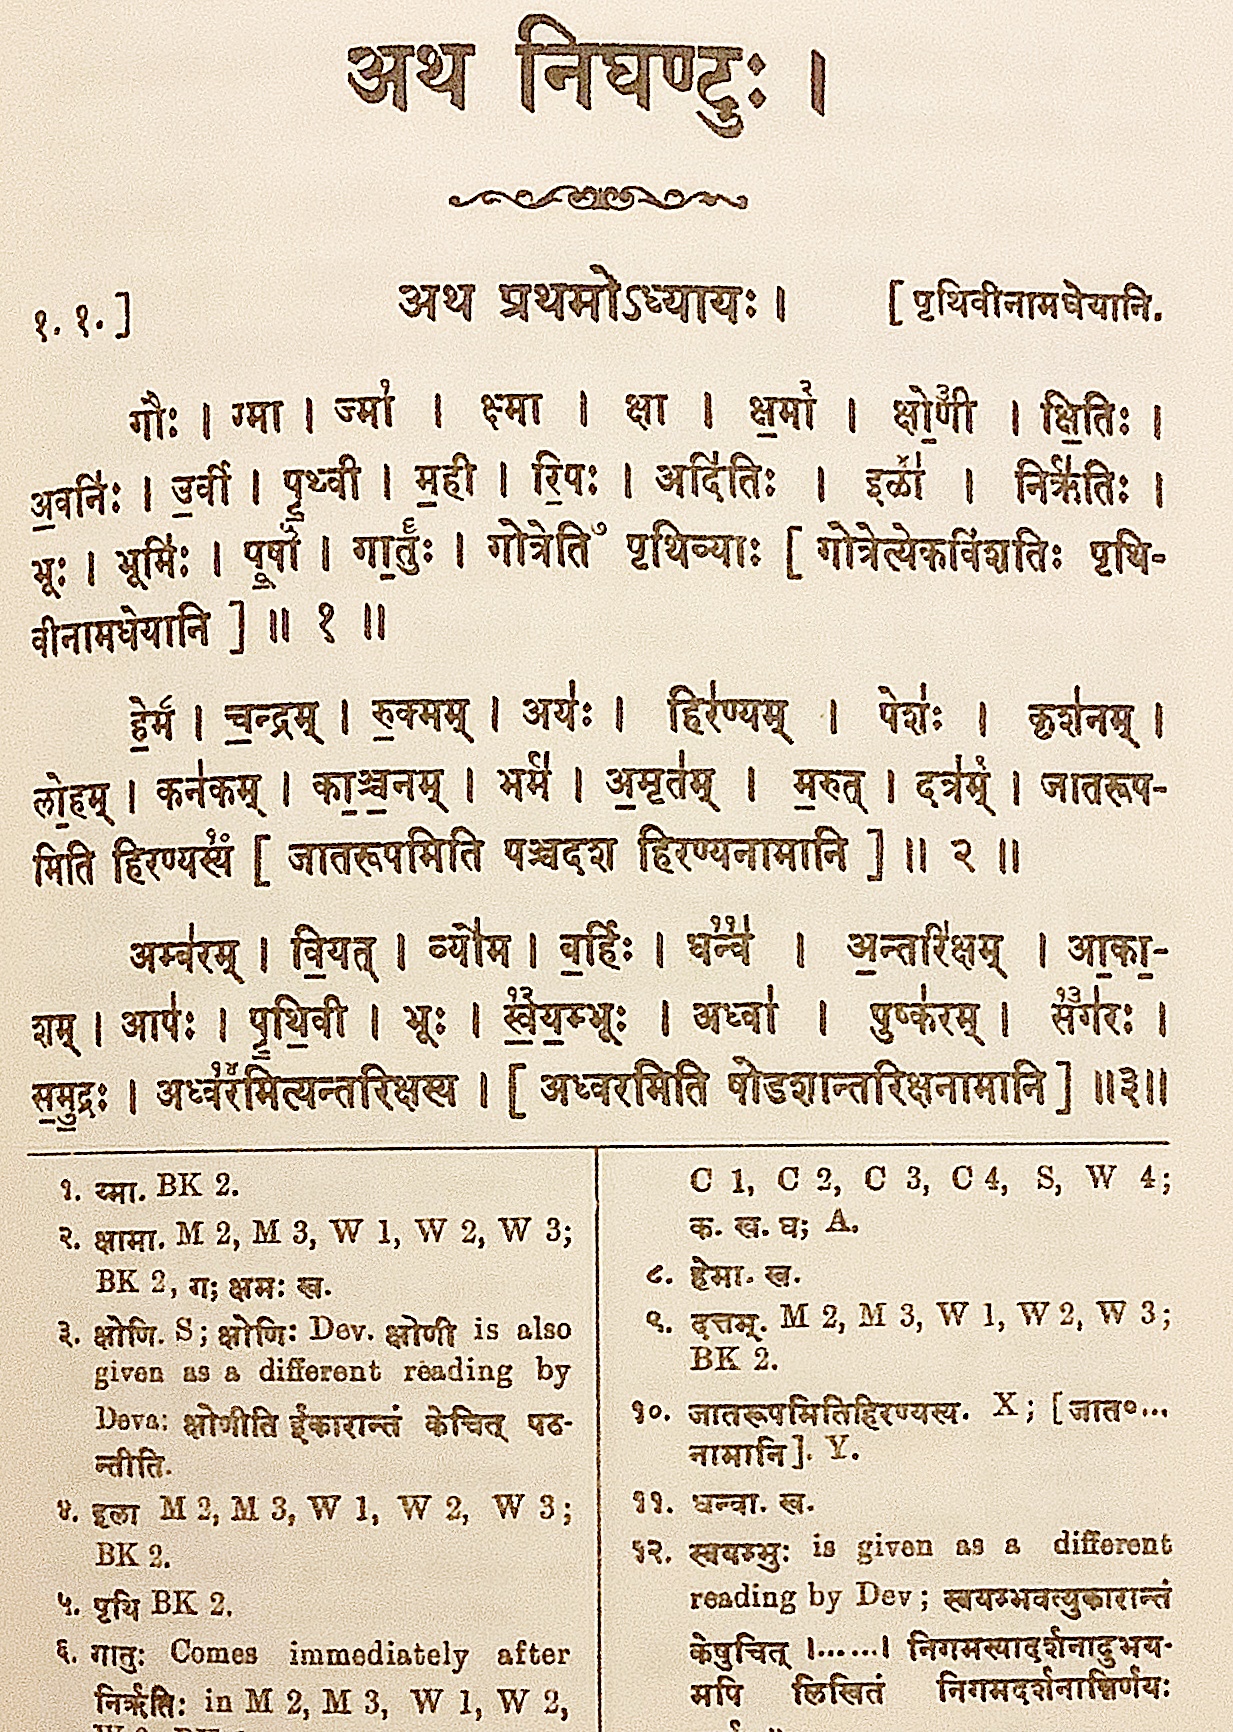 अथ निघण्टुः ।
१. १. ] अथ प्रथमोऽध्यायः । [ पृथिवीनामधेयानि.
गौः । ग्मा । ज्मा॑१ । क्ष्मा । क्षा । क्ष॒मा॑२ । क्षो॒णी॑३ । क्षि॒तिः ।
अ॒वनिः॑ । उ॒र्वी । पृ॒थ्वी । म॒ही । रि॒पः । अदि॑तिः । इळा॑४ । निर्ऋ॑तिः ।
भूः । भूमिः॑ । पू॒षा॑५ । गा॒तुः॑६ । गोत्रेति७ पृथिव्याः [ गोत्रेत्येकविंशतिः पृथि-
वीनामधेयानि ] ॥ १ ॥
हे॒म॑८ । च॒न्द्रम् । रु॒क्मम् । अयः॑ । हिर॑ण्यम् । पेशः॑ । कृश॑नम् ।
लो॒हम् । कन॑कम् । का॒ञ्च॒नम् । भर्म॑ । अ॒मृत॑म् । म॒रुत् । दत्र॑म्९ । जातरूप-
मिति हिरण्यस्य१० [ जातरूपमिति पञ्चदश हिरण्यनामानि ] ॥ २ ॥
अम्ब॑रम् । वि॒यत् । व्यो॑म । ब॒र्हिः॑ । धन्व॑११ । अ॒न्तरि॑क्षम् । आ॒का॒-
शम् । आपः॑ । पृ॒थि॒वी । भूः । स्व॒य॒म्भूः१२ । अध्वा॑ । पुष्क॑रम् । सग॑रः१३ ।
स॒मु॒द्रः । अध्वरमित्यन्तरिक्षस्य । [ अध्वरमिति षोडशान्तरिक्षनामानि ] ॥३॥
१. य्मा. BK 2.
२. क्षामा. M 2, M 3, W 1, W 2, W 3;
BK 2, ग; क्षमः ख.
३. क्षोणि. S; क्षोणिः Dev. क्षोणी is also
given as a different reading by
Deva: क्षोणीति ईकारान्तं केचित् पठ-
न्तीति.
४. इला M 2, M 3, W 1, W 2, W 3;
BK 2.
५. पृथि BK 2.
६. गातुः Comes immediately after
निर्ऋतिः in M 2, M 3, W 1, W 2,
C 1, C 2, C 3, C 4, S, W 4;
क. ख. घ; A.
८. हेमा. ख.
९. दत्तम्. M 2, M 3, W 1, W 2, W 3;
BK 2.
१०. जातरूपमितिहिरण्यस्य. X; [ जात०...
नामानि ]. Y.
११. धन्वा. ख.
१२. स्वयम्भुः is given as a different
reading by Dev; स्वयम्भवत्युकारान्तं
केषुचित् ।......। निगमस्यादर्शनादुभय-
मपि लिखितं निगमदर्शनान्निर्णयः